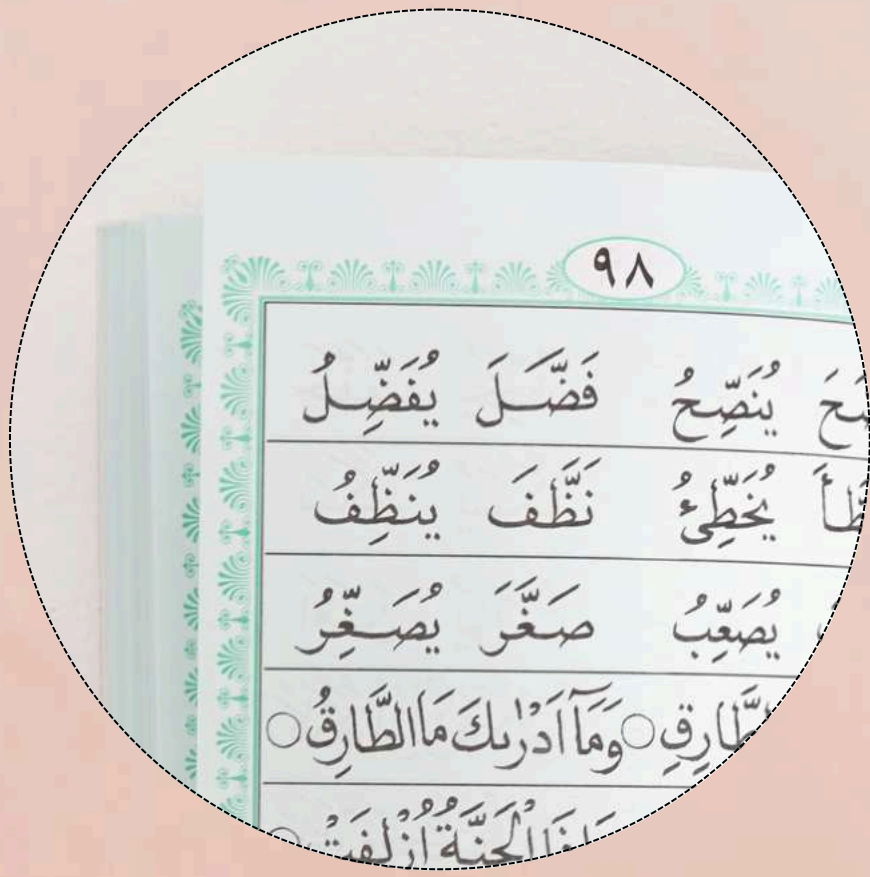 ٩٨
يُنَصِّحُ فَضَّلَ يُفَضِّلُ
يُخَطِّئُ نَظَّفَ يُنَظِّفُ
يُصَعِّبُ صَغَّرَ يُصَغِّرُ
وَمَآ اَدْرٰىكَ مَا الطَّارِقُ
الْجَنَّةُ اُزْلِفَتْ